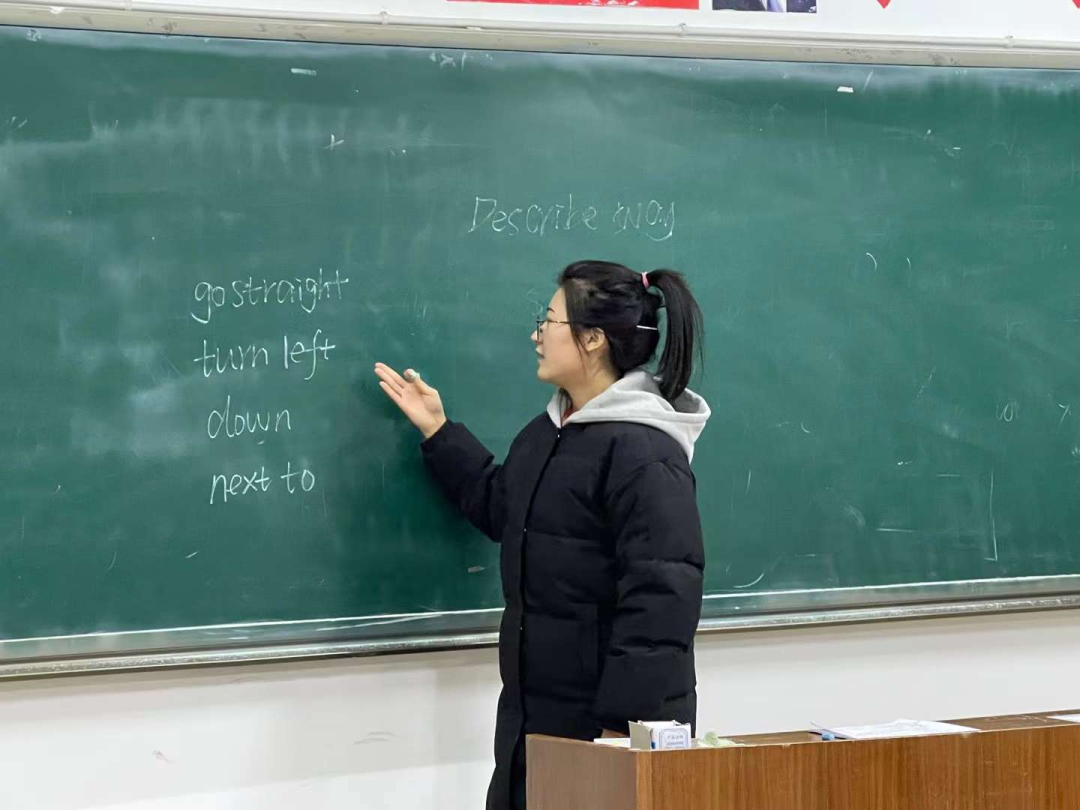 Describe way
go straight
turn left
down
next to